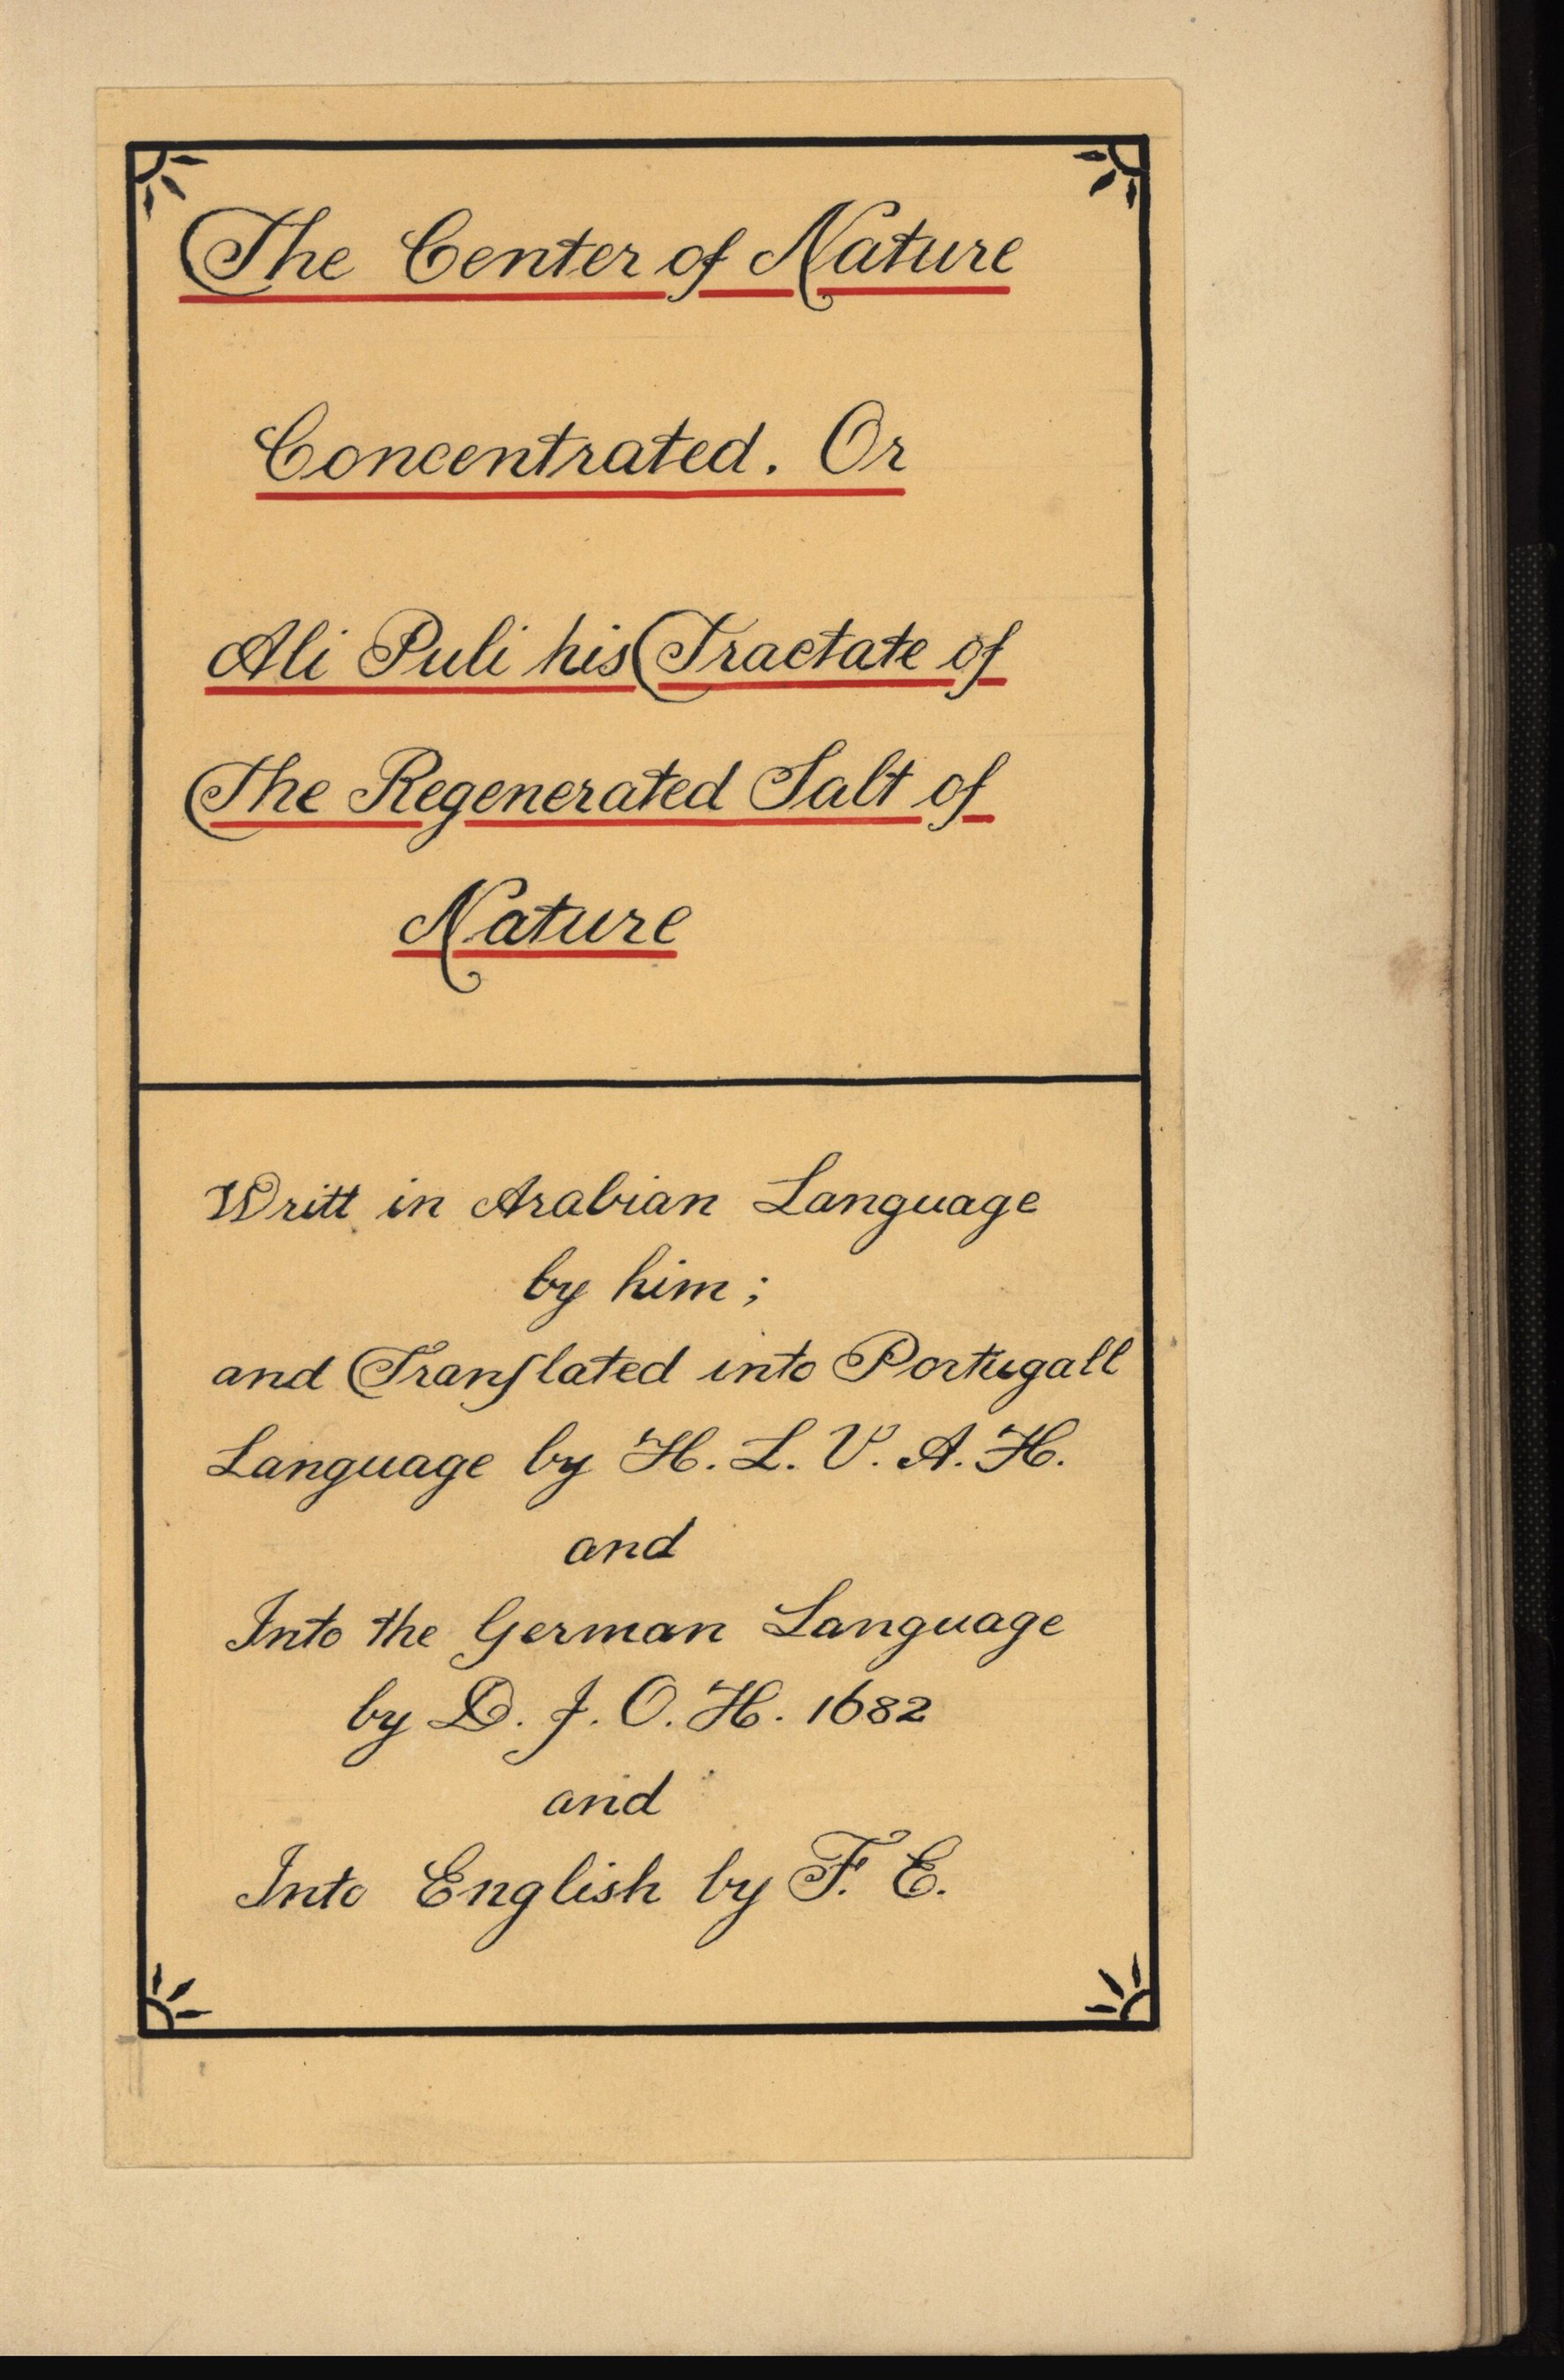 The Center of Nature
Concentrated. Or
Ali Puli his Tractate of
The Regenerated Salt of
Nature
Writt in Arabian Language
by him;
and Tranſlated into Portugall
Language by H. L. V. A. H.
and
Into the German Language
by D. J. O. H. 1682
and
Into English by F. E.